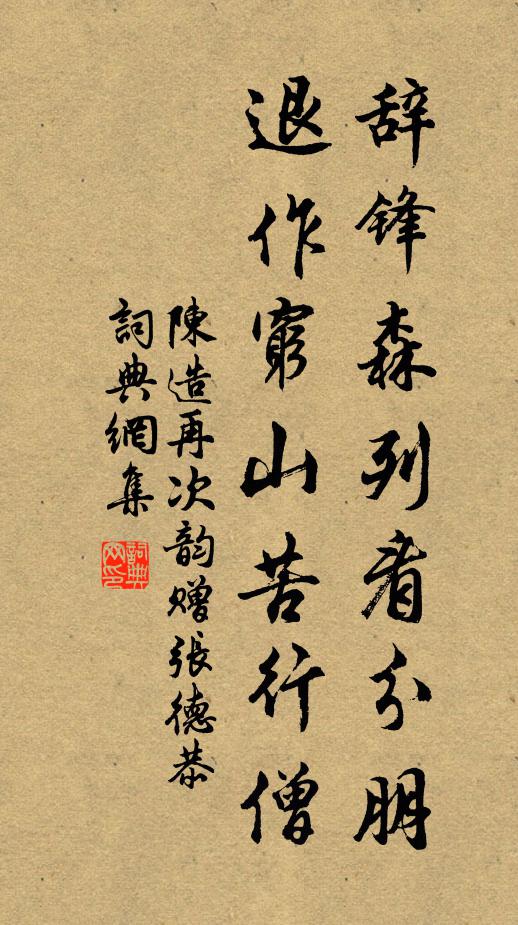 辞锋森列看分朋
退作窮山苦行僧
陳造再次韵赠張德恭
詞典網集
詞典網印